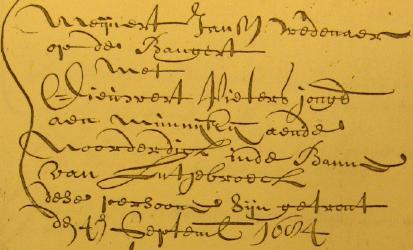 Meijnert Jansz wedenaer
op de Bangert
Met
Dieuwert Pieters jongd
aen
Noorderdick inde Bann
van Lutjebroeck
dese persoonen sijn getrout
den 4 Septemb 1684